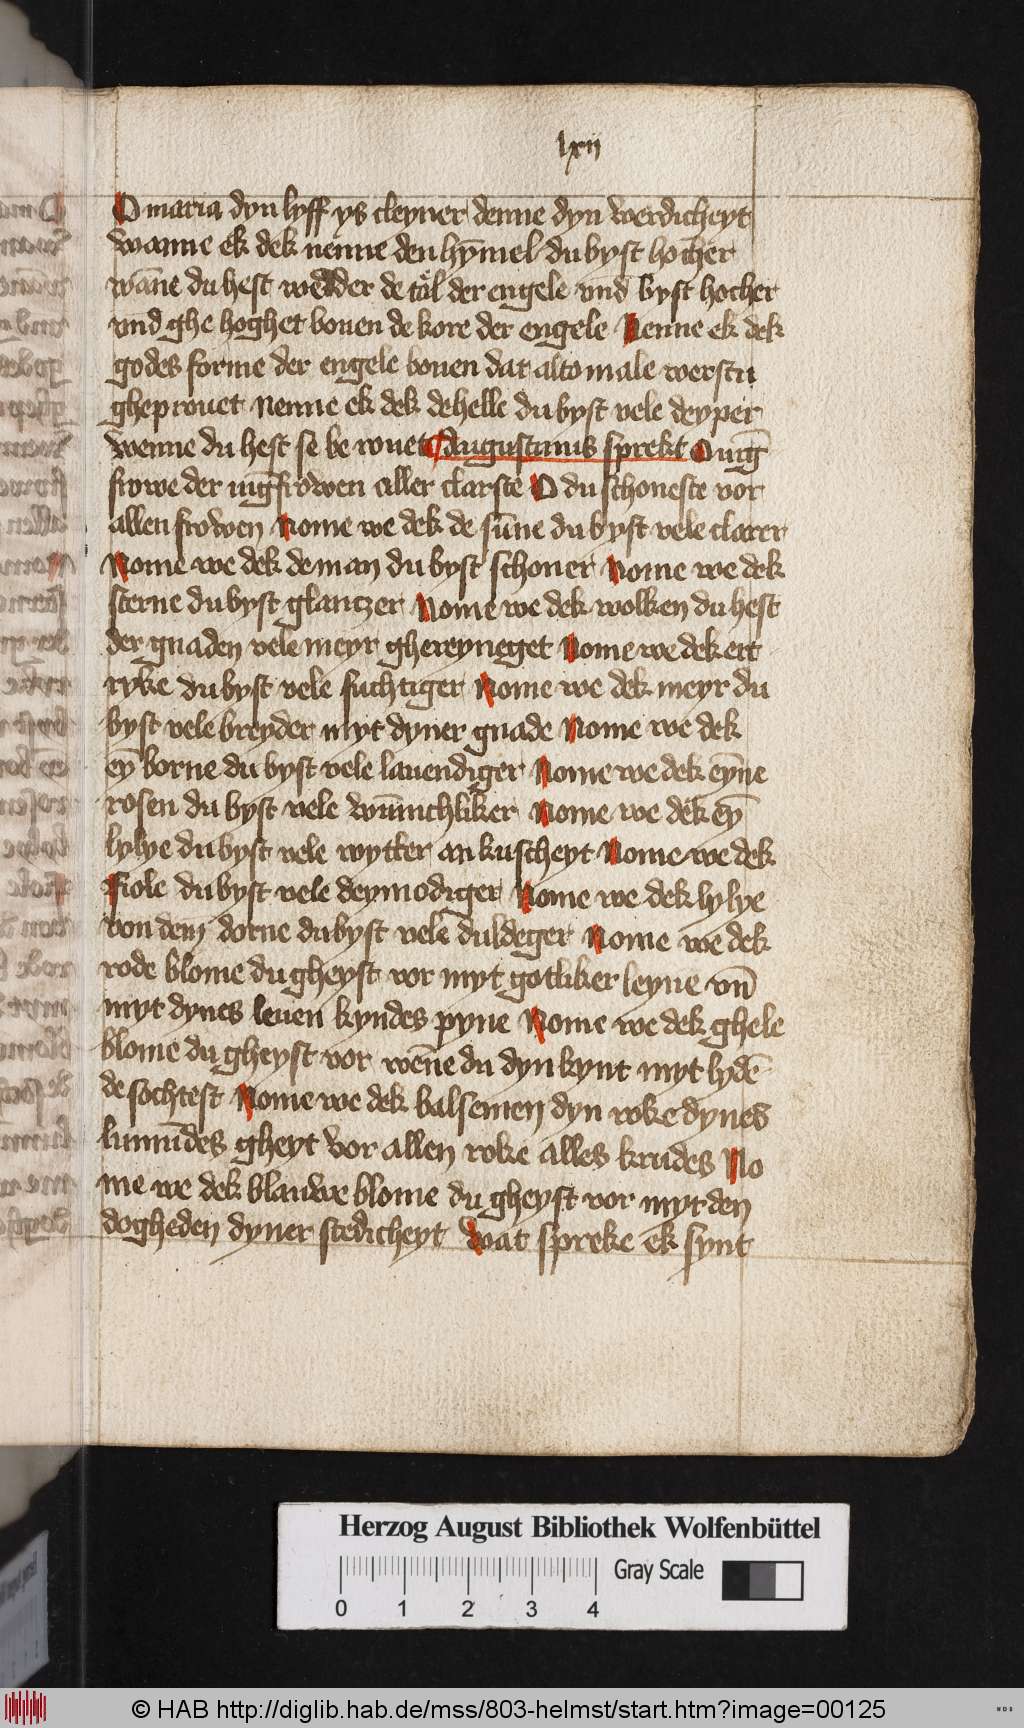 lxii
O maria dyn lyff ys cleyner denne dyn werdicheyt
wanne ek dek nenne den hȳmel du byst hocher
wāne du hest wedder de tal der engele vnd byst hocher
vnd ghe hoghet bouen de kore der engele Nenne ek dek
godes forme der engele bouen dat altomale werstu
gheprouet nenne ek dek de helle du byst vele deyper
wenne du hest se be rouet Augustinus sprekt O iūg
frowe der iūgfrowen aller clarste O du schoneste vor
allen frowen Nome we dek de sūne du byst vele clarer
Nome we dek de man du byst schoner Nome we dek
sterne du byst glantzer Nome we dek wolken du hest
der gnaden vele meyr ghereyneget Nome we dek ert
ryke du byst vele fuchtiger Nome we dek meyr du
byst vele breyder myt dyner gnade Nome we dek
eȳ borne du byst vele lauendiger Nome we dek eyne
rosen du byst vele wūnichliker Nome we dek eȳ
lylye du byst vele wytter an kuscheyt Nome we dek
Fiole du byst vele deymodiger Nome we dek lylye
von dem dorne du byst vele duldeger Nome we dek
rode blome du gheyst vor myt gotliker leyue vn̄
myt dynes leuen kyndes pyne Nome we dek ghele
blome du gheyst vor wēne du dyn kynt myt lydē
de sochtest Nome we dek balsemen dyn roke dynes
lūmūdes gheyt vor allen roke alles krudes No
me we dek blauwe blome du gheyst vor myt den
dogheden dyner stedicheyt wat spreke ek synt
Herzog August Bibliothek Wolfenbüttel
Gray Scale
0 1 2 3 4
© HAB http://diglib.hab.de/mss/803-helmst/start.htm?image=00125